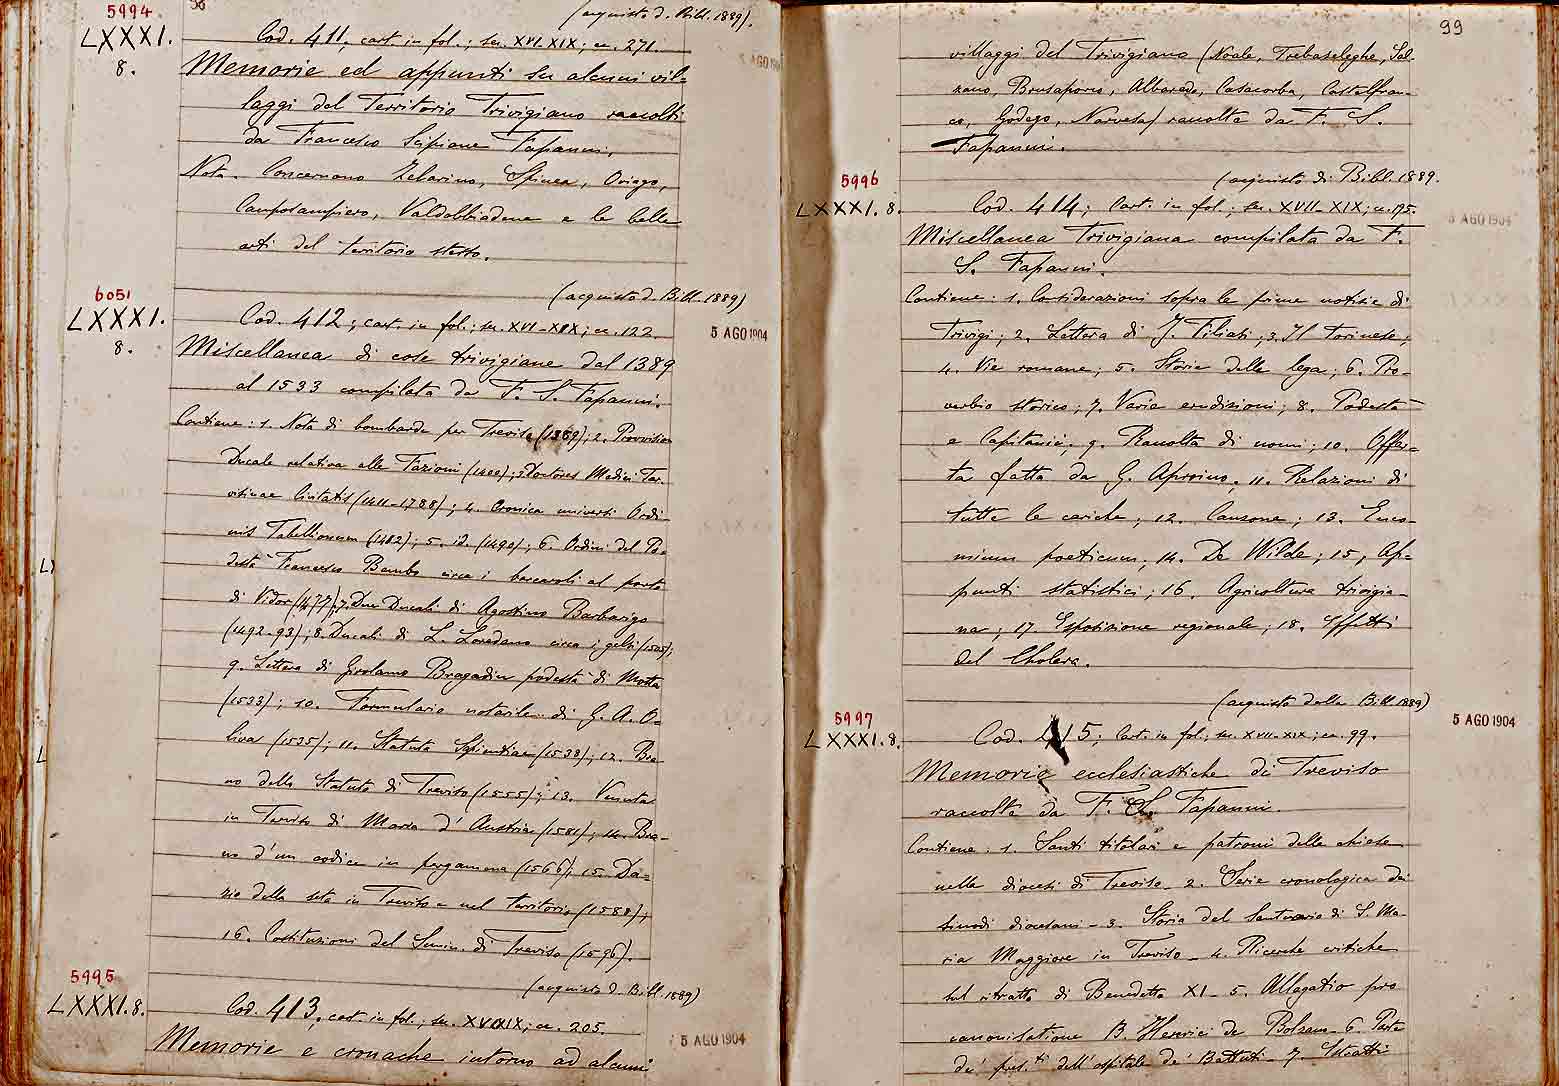 98
(acquisto d. Bibl. 1889).
5994
LXXXI.
8.
Cod. 411, cart. in fol.; sec. XVI-XIX; cc. 271.
5 AGO 1904
Memorie ed appunti su alcuni vil=
laggi del Territorio Trivigiano raccolti
da Francesco Scipione Fapanni.
Nota. Concernono Zelarino, Spinea, Oriago,
Camposampiero, Valdobbiadene e le belle
arti del territorio stesso.
(acquisto d. Bibl. 1889)
6051
LXXXI.
8.
Cod. 412; cart. in fol.; sec. XVI-XIX; cc. 122.
5 AGO 1904
Miscellanea di cose trivigiane dal 1389
al 1533 compilata da F. S. Fapanni.
Contiene: 1. Nota di bombarde per Treviso ; 2. Provvision
Ducale relativa alle Fazioni (1400); 3 Doctores Medici Tar-
visinae Civitatis (1411-1788); 4. Cronica universi Ordi-
nis Tabellionum (1482); 5. id. (1490); 6. Ordini del Po-
destà Francesco Bembo circa i barcaroli al porto
di Vidor (1477); 7. Due Ducali di Agostino Barbarigo
(1492-93); 8. Ducali di L. Loredano circa i gelsi (1505);
9. Lettera di Girolamo Bragadin podestà di Motta
(1533); 10. Formulario notarile di G. A. O-
liva (1535); 11. Statuta Sapientiae (1538); 12. Bra=
no dello Statuto di Treviso (1555); 13. Venuta
in Treviso di Maria d'Austria (1581); 14. Bra-
no d'un codice in pergamena (1566); 15. Da=
zio della seta in Treviso e nel territorio (1588);
16. Costituzioni del Semin. di Treviso (1596).
(acquisto d. Bibl. 1889)
5995
LXXXI. 8.
Cod. 413, cart. in fol.; sec. XVI-XIX; cc. 205.
5 AGO 1904
Memorie e cronache intorno ad alcuni
99
villaggi del Trivigiano (Noale, Trebaseleghe, Sal-
zano, Brusaporco, Albaredo, Casacorba, Castelfran-
co, Godego, Narvesa) raccolte da F. S.
Fapanni.
(acquisto di Bibl. 1889.
5996
LXXXI. 8.
Cod. 414; Cart. in fol.; sec. XVII-XIX; cc. 175.
5 AGO 1904
Miscellanea Trivigiana compilata da F.
S. Fapanni.
Contiene: 1. Considerazioni sopra le prime notizie di
Trivigi; 2. Lettera di J. Filiasi; 3. Il Torinese;
4. Vie romane; 5. Storie della lega; 6. Pro-
verbio storico; 7. Varie erudizioni; 8. Podestà
e Capitanii. 9. Raccolta di nomi; 10. Offer=
ta fatta da G. Aproino; 11. Relazioni di
tutte le cariche; 12. Canzone; 13. Enco-
mium poeticum, 14. De Wilde; 15, Ap-
punti statistici; 16. Agricoltura trivigia-
na; 17. Esposizione regionale; 18. Effetti
del Cholera.
(acquisto della Bibl. 1889)
5997
LXXXI. 8.
Cod. 415; Cart. in fol.; sec. XVII-XIX; cc. 99.
5 AGO 1904
Memorie ecclesiastiche di Treviso
raccolte da F. S. Fapanni.
Contiene: 1. Santi titolari e patroni delle chiese
nella diocesi di Treviso - 2. Serie cronologica dei
sinodi diocesani - 3. Storia del Santuario di S. Ma-
ria Maggiore in Treviso - 4. Ricerche critiche
sul ritratto di Benedetto XI - 5. Allegatio pro
canonisatione B. Henrici de Bolzan - 6. Parte
de' pres.ti dell'ospitale de' Battuti - 7. Estratti